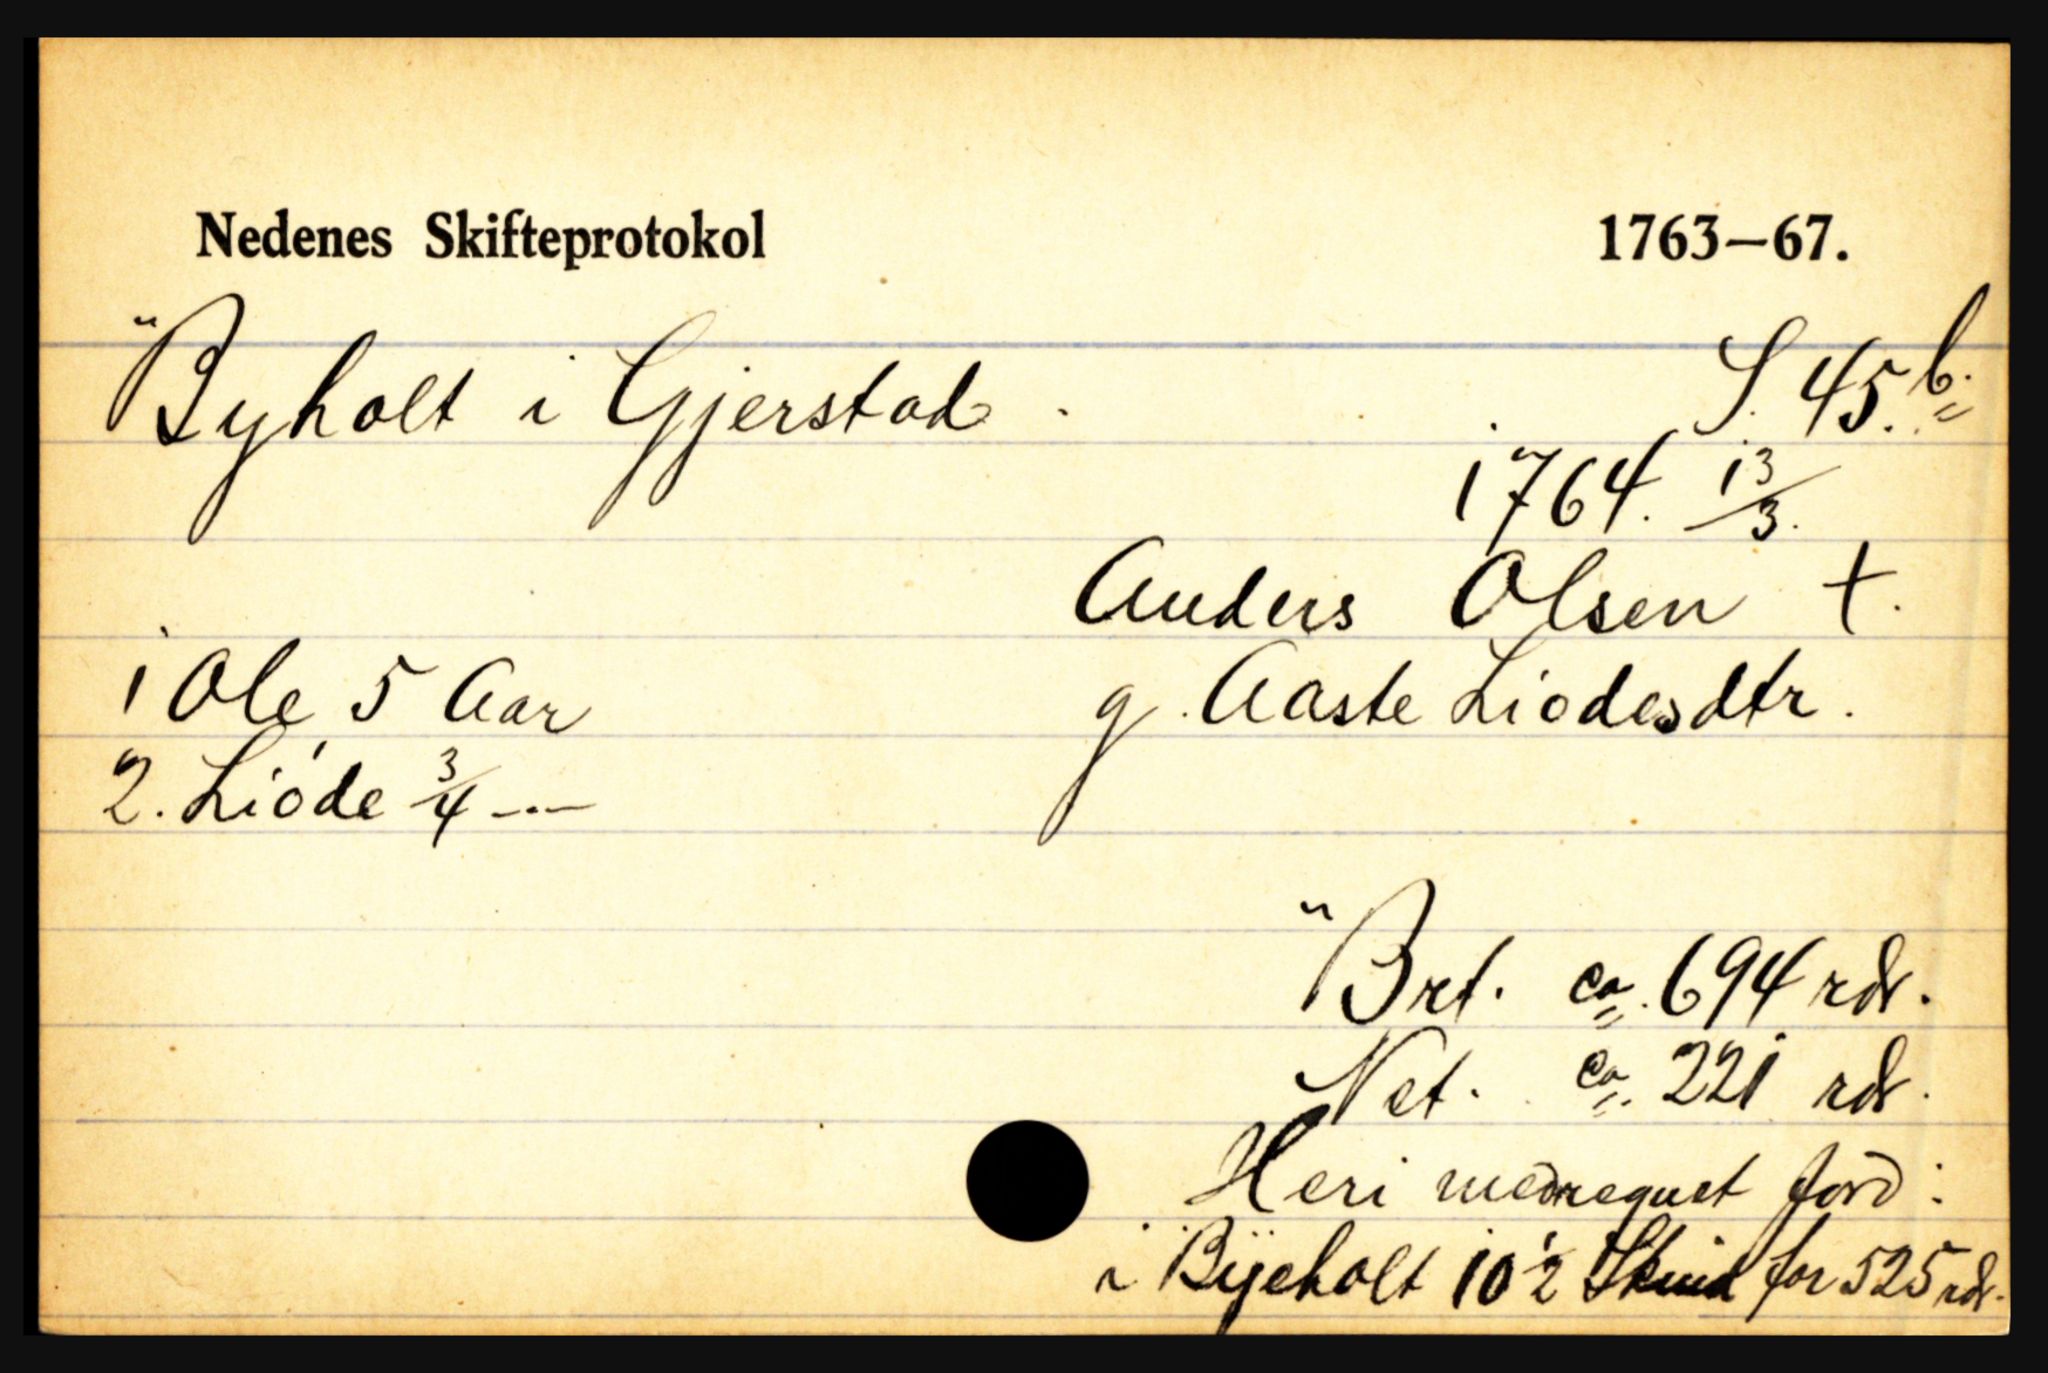 Nedenes Skifteprotokol 1763–67.
Byholt i Gjerstad. S. 45.b.
1764. 13/3.
Anders Olsen †.
1 Ole 5 Aar g. Aaste Liodesdtr.
2. Lióde 3/4 -.-
Brt. ca. 694 rdr.
Net. ca. 221 rdr.
Heri medregnet Jord:
i Byeholt 10 1/2 Skind for 525 rdr.